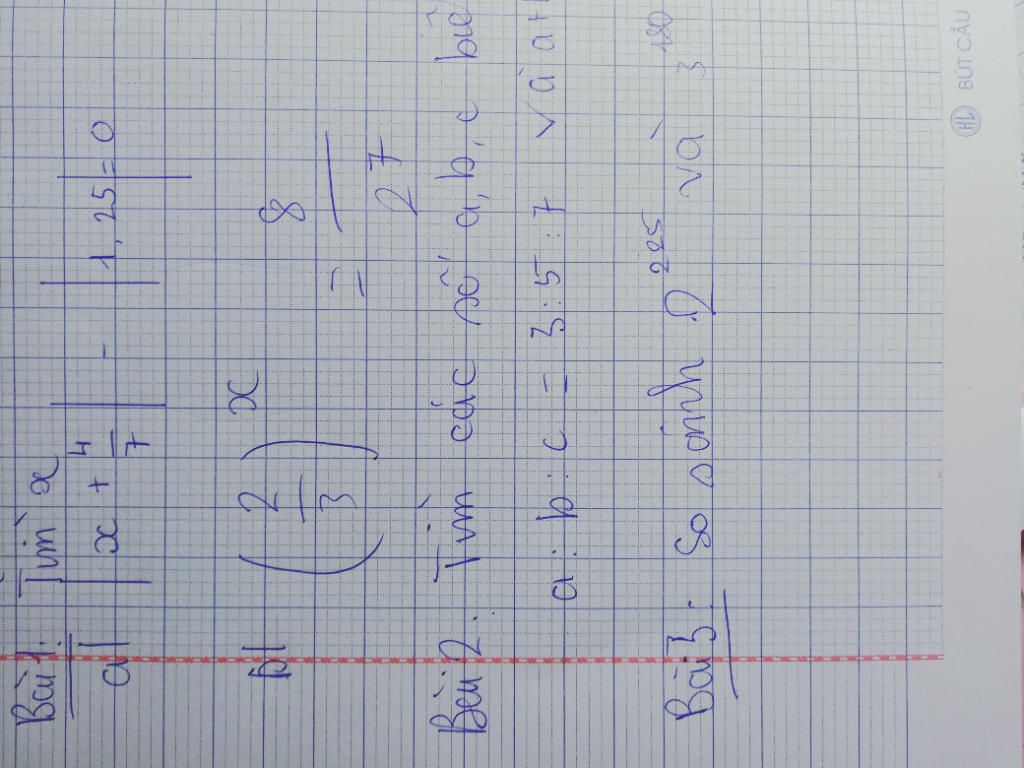 Bài 1: Tìm x
a| |x + 4/7| - |1,25| = 0
b| (2/3)^x = 8/27
Bài 2. Tìm các số a, b, c
a : b : c = 3 : 5 : 7 và
Bài 3: So sánh 2^225 và 3^150
BÚT CẦU